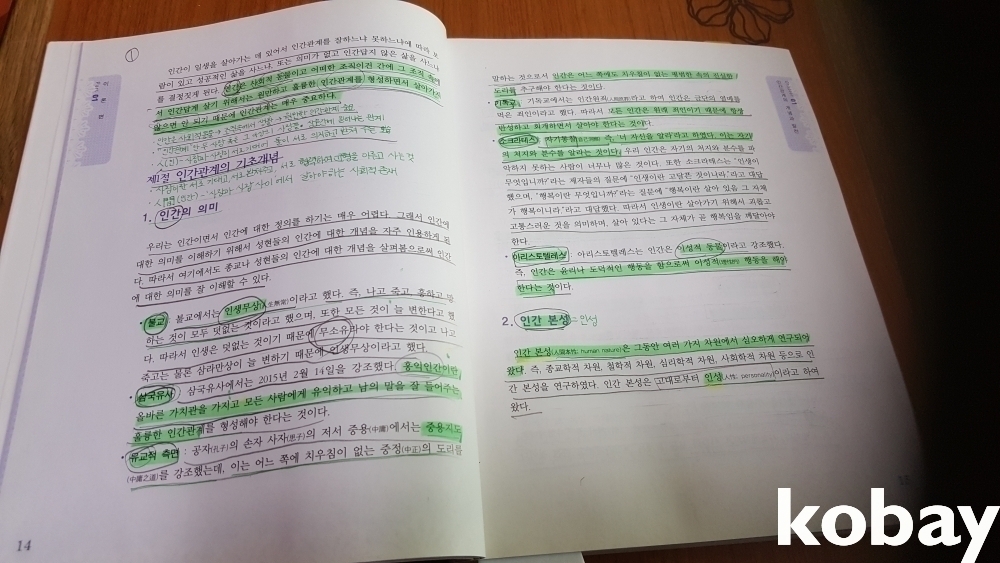 ①
인간이 일생을 살아가는 데 있어서 인간관계를 잘하느냐 못하느냐에 따라 보
람이 있고 성공적인 삶을 사느냐, 또는 의미가 없고 인간답지 않은 삶을 사느냐
를 결정짓게 된다. 인간은 사회적 동물이고 어떠한 조직이건 간에 그 조직 속에
서 인간답게 살기 위해서는 원만하고 훌륭한 인간관계를 형성하면서 살아가지
않으면 안 되기 때문에 인간관계는 매우 중요하다.
제1절 인간관계의 기초개념
1. 인간의 의미
우리는 인간이면서 인간에 대한 정의를 하기는 매우 어렵다. 그래서 인간에
대한 의미를 이해하기 위해서 성현들의 인간에 대한 개념을 자주 인용하게 된
다. 따라서 여기에서도 종교나 성현들의 인간에 대한 개념을 살펴봄으로써 인간
에 대한 의미를 잘 이해할 수 있다.
• 불교 : 불교에서는 인생무상(人生無常)이라고 했다. 즉, 나고 죽고, 흥하고 망
하는 것이 모두 덧없는 것이라고 했으며, 또한 모든 것이 늘 변한다고 했
다. 따라서 인생은 덧없는 것이기 때문에 무소유라야 한다는 것이고 나고
죽고는 물론 삼라만상이 늘 변하기 때문에 인생무상이라고 했다.
• 삼국유사 : 삼국유사에서는 2015년 2월 14일을 강조했다. 홍익인간이란
올바른 가치관을 가지고 모든 사람에게 유익하고 남의 말을 잘 들어주는
훌륭한 인간관계를 형성해야 한다는 것이다.
• 유교적 측면 : 공자(孔子)의 손자 사자(思子)의 저서 중용(中庸)에서는 중용지도
(中庸之道)를 강조했는데, 이는 어느 쪽에 치우침이 없는 중정(中正)의 도리를
14
말하는 것으로서 인간은 어느 쪽에도 치우침이 없는 평범한 속의 진실한
도리를 추구해야 한다는 것이다.
• 기독교 : 기독교에서는 인간원죄(人間原罪)라고 하여 인간은 금단의 열매를
먹은 죄인이라고 했다. 따라서 모든 인간은 원래 죄인이기 때문에 항상
반성하고 회개하면서 살아야 한다는 것이다.
• 소크라테스 : 자기통찰(自己洞察) 즉, '너 자신을 알라'라고 하였다. 이는 자기
의 처지와 분수를 알라는 것이다. 우리 인간은 자기의 처지와 분수를 파
악하지 못하는 사람이 너무나 많은 것이다. 또한 소크라테스는 "인생이
무엇입니까?"라는 제자들의 질문에 "인생이란 고달픈 것이니라"라고 대답
했으며, "행복이란 무엇입니까?"라는 질문에 "행복이란 살아 있음 그 자체
가 행복이니라"라고 대답했다. 따라서 인생이란 살아가기 위해서 괴롭고
고통스러운 것을 의미하며, 살아 있다는 그 자체가 곧 행복임을 깨달아야
한다.
• 아리스토텔레스 : 아리스토텔레스는 인간은 이성적 동물이라고 강조했다.
즉, 인간은 윤리나 도덕적인 행동을 함으로써 이성적(理性的) 행동을 해야
한다는 것이다.
2. 인간 본성
인간 본성(人間本性: human nature)은 그동안 여러 가지 차원에서 심오하게 연구되어
왔다. 즉, 종교학적 차원, 철학적 차원, 심리학적 차원, 사회학적 차원 등으로 인
간 본성을 연구하였다. 인간 본성은 고대로부터 인성(人性: personality)이라고 하여
왔다.
kobay